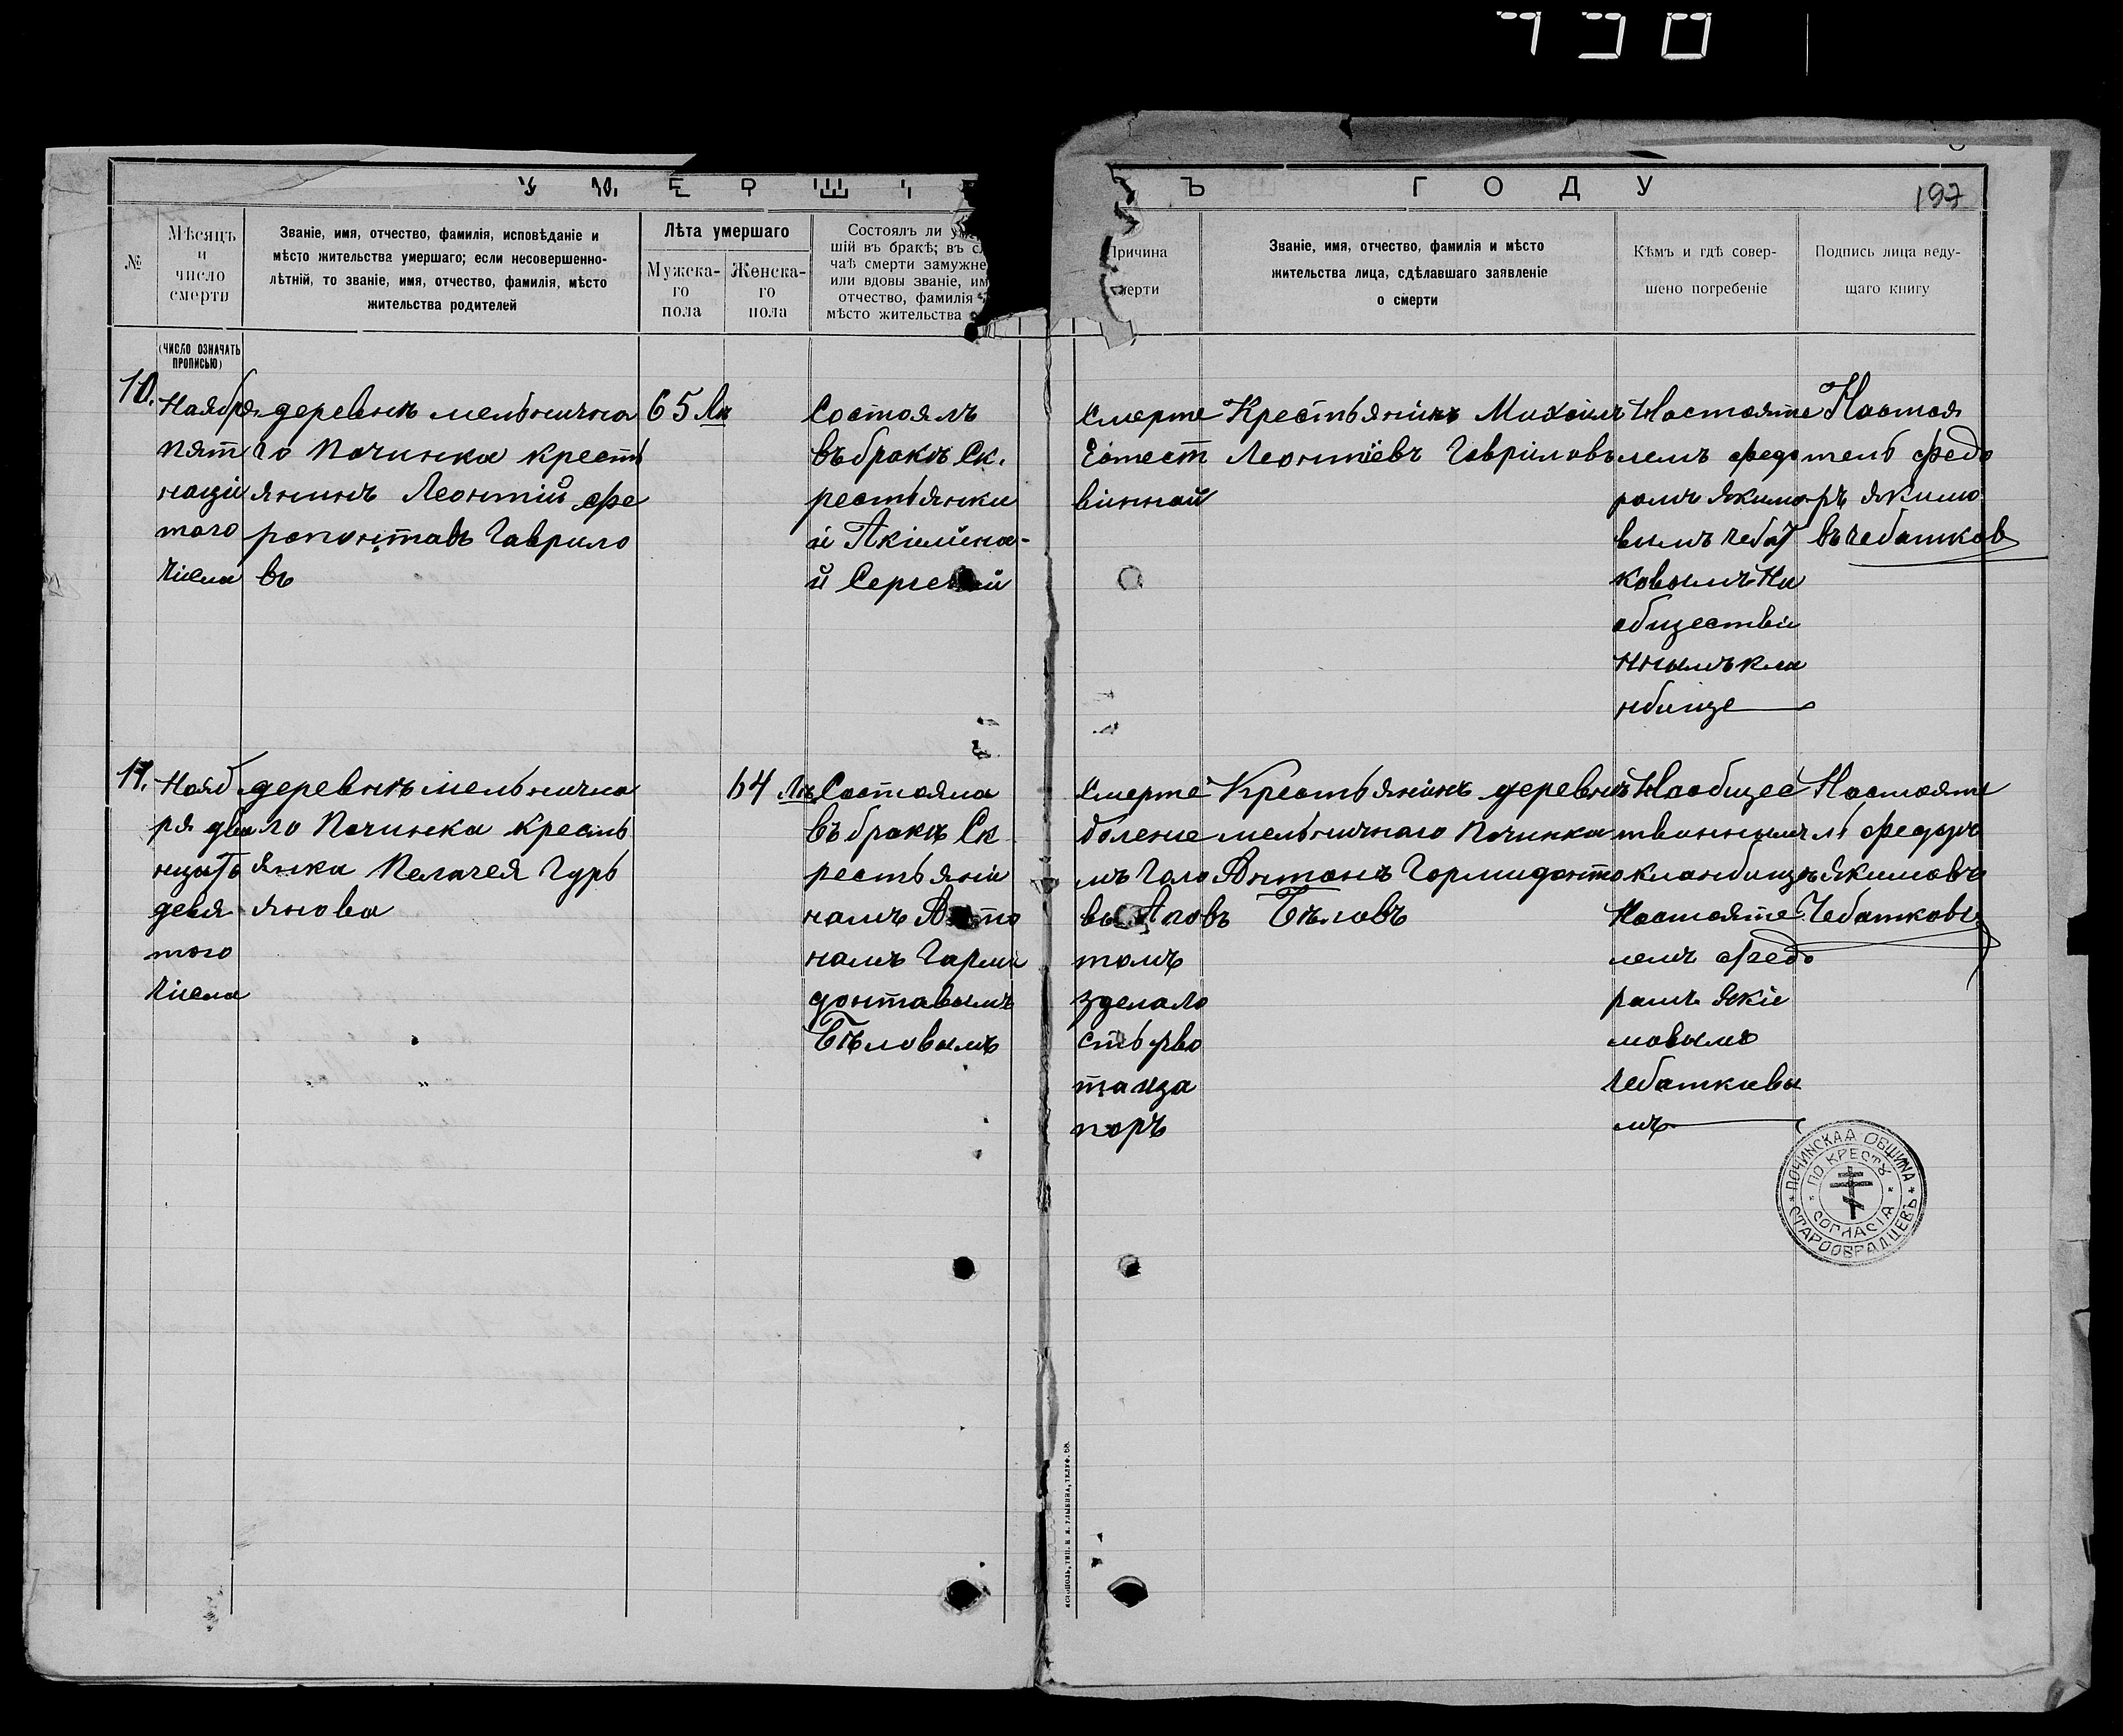 У М Е Р Ш І
Ъ Г О Д У
197
№
Мѣсяцъ
и
число
смерти
Званіе, имя, отчество, фамилія, исповѣданіе и
мѣсто жительства умершаго; если несовершенно-
лѣтній, то званіе, имя, отчество, фамилія, мѣсто
жительства родителей
Лѣта умершаго
Мужска-
го
пола
Женска-
го
пола
Состоялъ ли
шій въ бракѣ; въ с
чаѣ смерти замужне
или вдовы званіе, им
отчество, фамилія
мѣсто жительства
Причина
смерти
Званіе, имя, отчество, фамилія и мѣсто
жительства лица, сдѣлавшаго заявленіе
о смерти
Кѣмъ и гдѣ совер-
шено погребеніе
Подпись лица веду-
щаго книгу
(ЧИСЛО ОЗНАЧАТЬ
ПРОПИСЬЮ)
10.
Наября
пят
наці
того
числа
деревнѣ мельнична
го Починка кресть
янинъ Леонтій фе
рапонтавъ Гаврило
въ
65 Лѣ
Состоялъ
въ бракѣ Ск.
рестьянки
й Акілина-
й Сергевай
Смерте
Естест
вінной
Крестьянинъ Михаилъ
Леонтіевъ Гавриловъ
Настояте
лемъ федо
ромъ якимо
вымъ чебат
ковымъ На
обществі
ннымъ кла
нбище
Настоя
тель федо
ръ якимо
въ чебатков
11.
Нояб
ря два
нцать
девя
того
числа
деревнѣ мельнична
го Починка кресть
янка Пелагея Гурь
янова
64 Лѣ
Состояла
въ бракѣ Ск
рестьяни
номъ Анто
номъ Гарми
донтавымъ
Бѣловымъ
Смерте
боление
мъ Гало
вы Апов
томъ
зделало
сть рво
та иза
поръ
Крестьянинъ деревни
мельничнаго Починка
Антонъ Гормидонто
въ Бѣловъ
На общес
твоннымъ
кланбищѣ
Настояте
лемъ Федо
рамъ Які
мовымъ
чебаткавы
мъ
Настояте
ль федоръ
якимовъ
Чебатковъ
ПОЧИНСКАЯ ОБЩИНА
СТАРООБРЯДЦЕВЪ
ПО КРЕСТУ
СОГЛАСІЯ